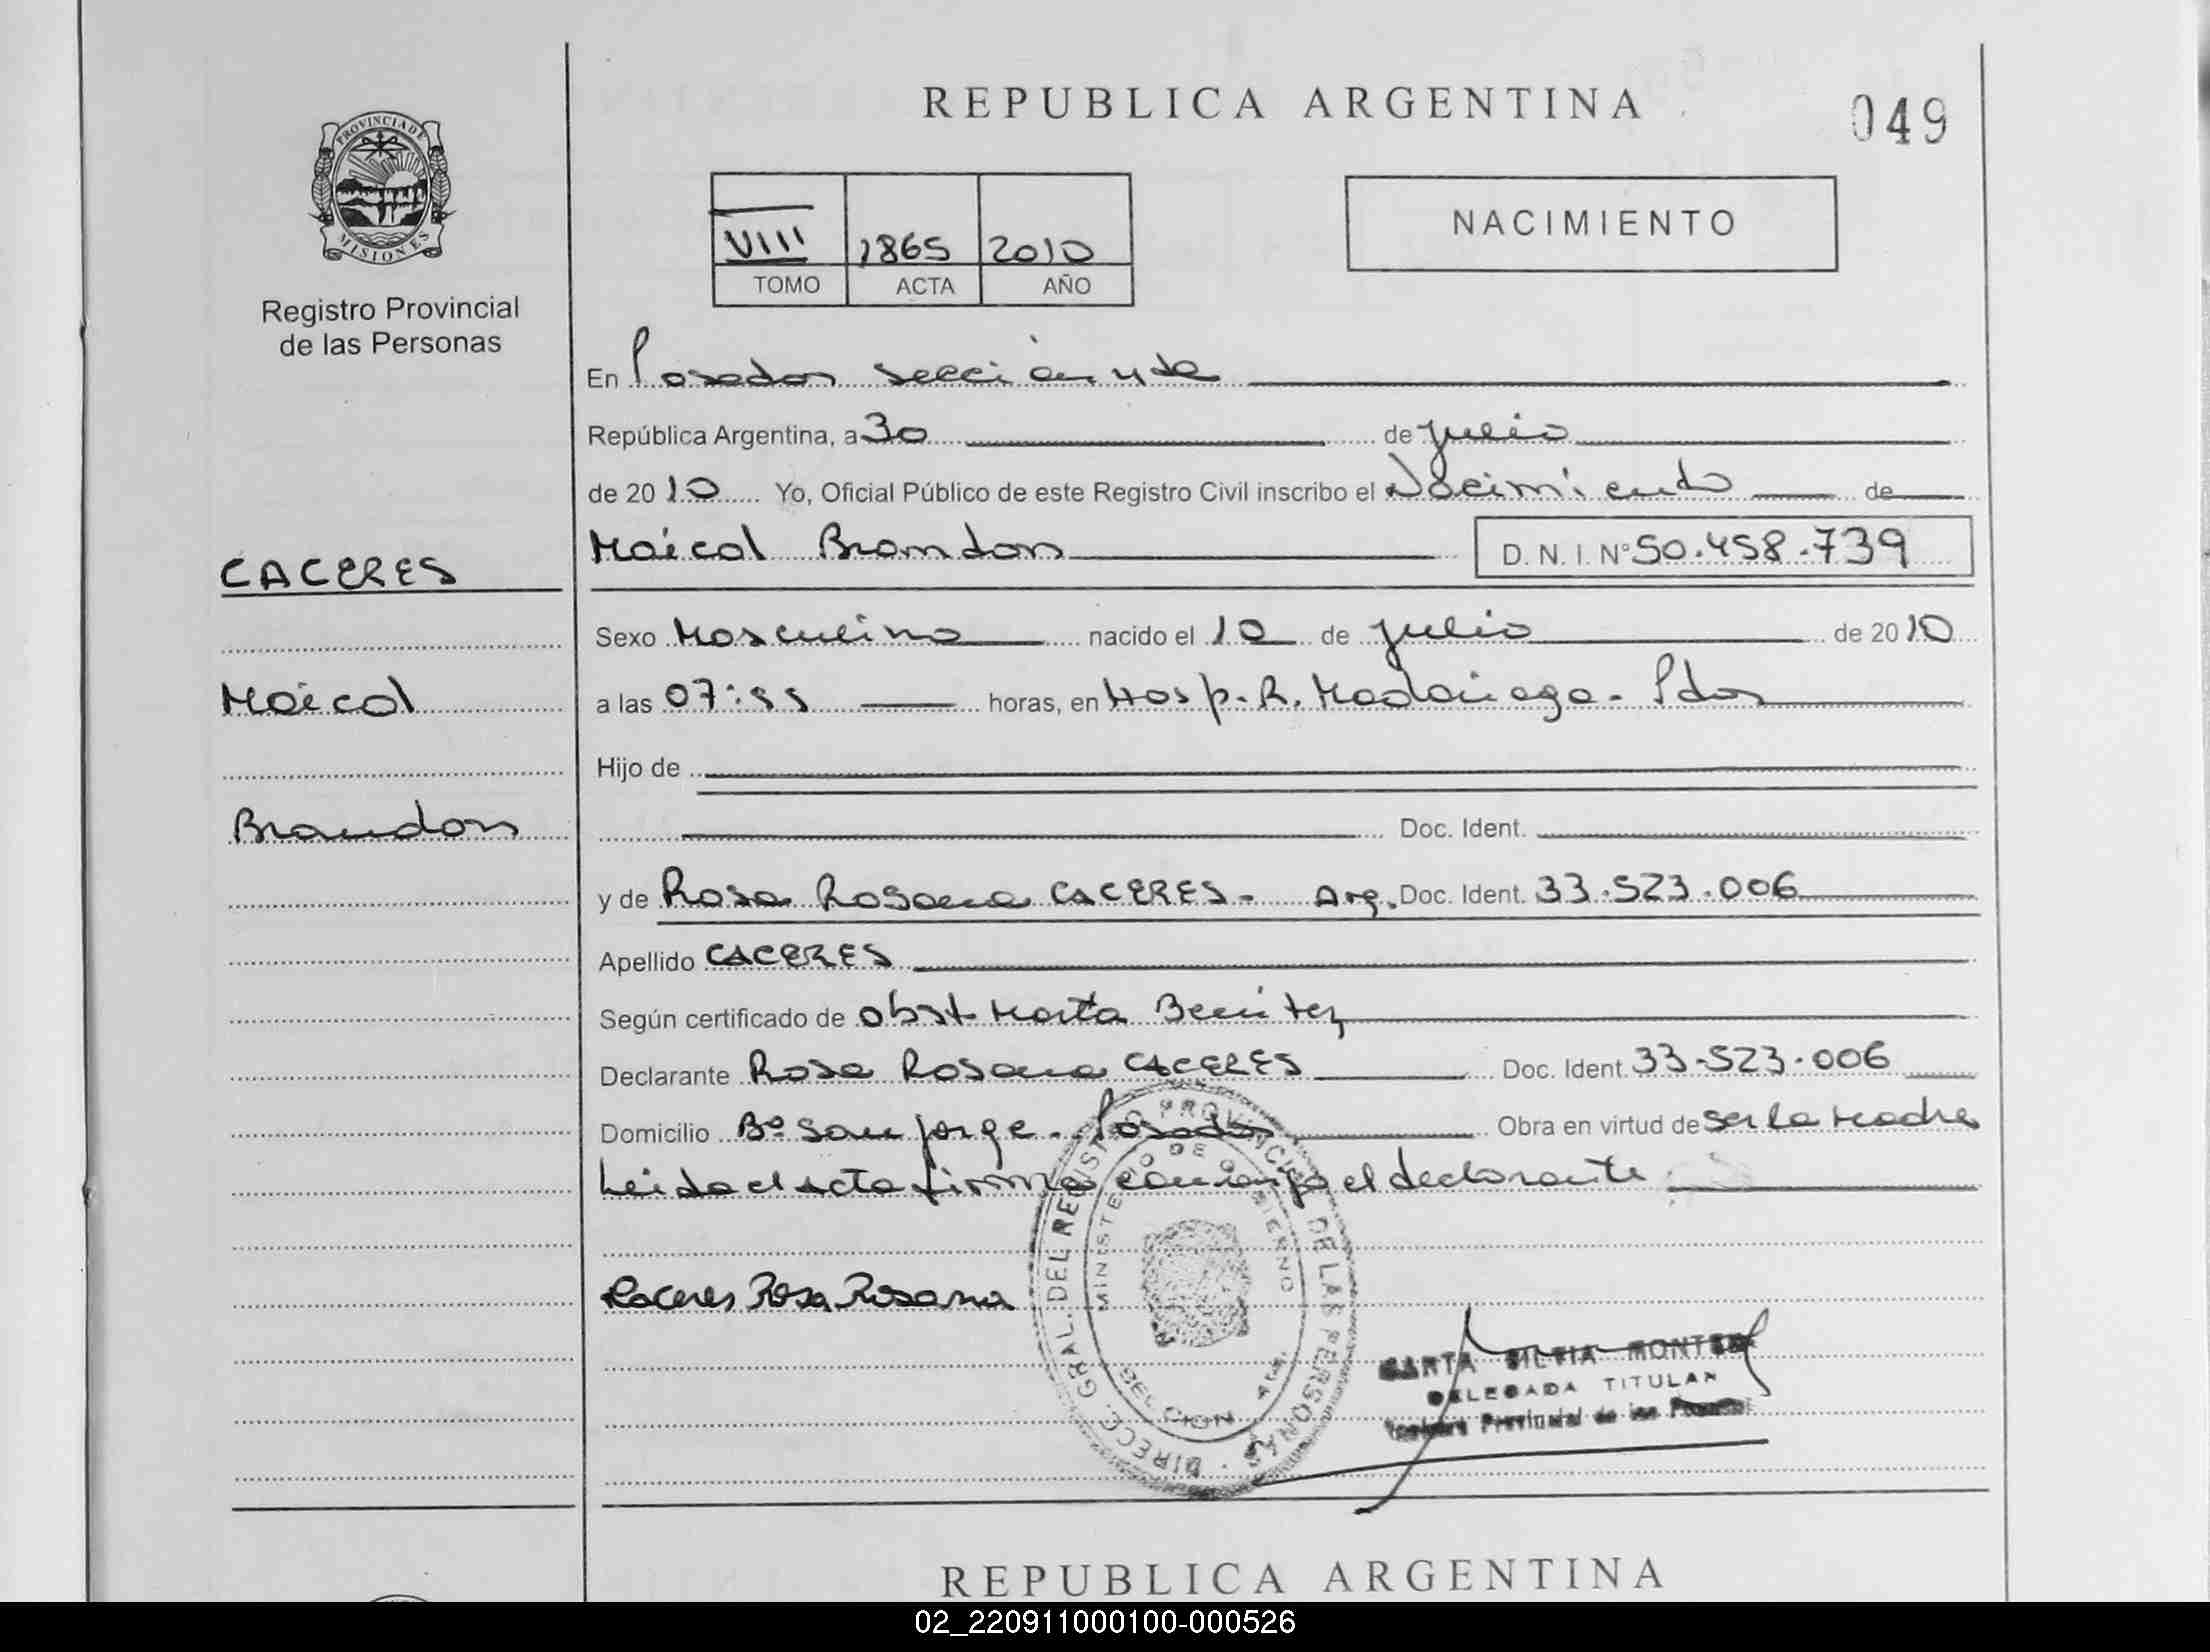 REPUBLICA ARGENTINA
049
PROVINCIA DE
MISIONES
Registro Provincial
de las Personas
VIII 1865 2010
TOMO ACTA AÑO
NACIMIENTO
En Posadas sección 4ta
República Argentina, a 30 de julio
de 2010 Yo, Oficial Público de este Registro Civil inscribo el Nacimiento de
Maicol Brandon D. N. I. Nº 50.458.739
CACERES
Maicol
Brandon
Sexo Masculino nacido el 10 de julio de 2010
a las 07:55 horas, en Hosp. R. Madariaga - Pdas
Hijo de
Doc. Ident.
y de Rosa Rosana CACERES - Arg. Doc. Ident. 33.523.006
Apellido CACERES
Según certificado de obst. Marta Benitez
Declarante Rosa Rosana CACERES Doc. Ident. 33.523.006
Domicilio Bº San Jorge - Posadas Obra en virtud de ser la madre
Leida el acta firma conmigo el declarante
Caceres Rosa Rosana
DIRECC. GRAL. DEL REGISTRO PROVINCIAL DE LAS PERSONAS
MINISTERIO DE GOBIERNO
SILVIA
DELEGADA TITULAR
Provincial de las Personas
REPUBLICA ARGENTINA
02_220911000100-000526